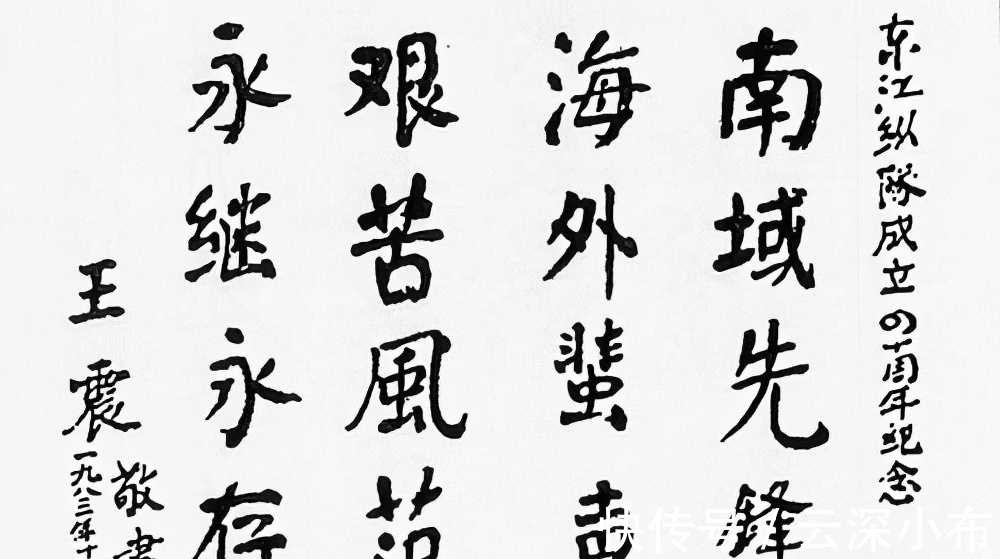 东江纵隊成立四十周年纪念
南域先锋
海外蜚
艰苦風范
永继永存
王震敬书
一九八三年十
快传号 / 云深小布